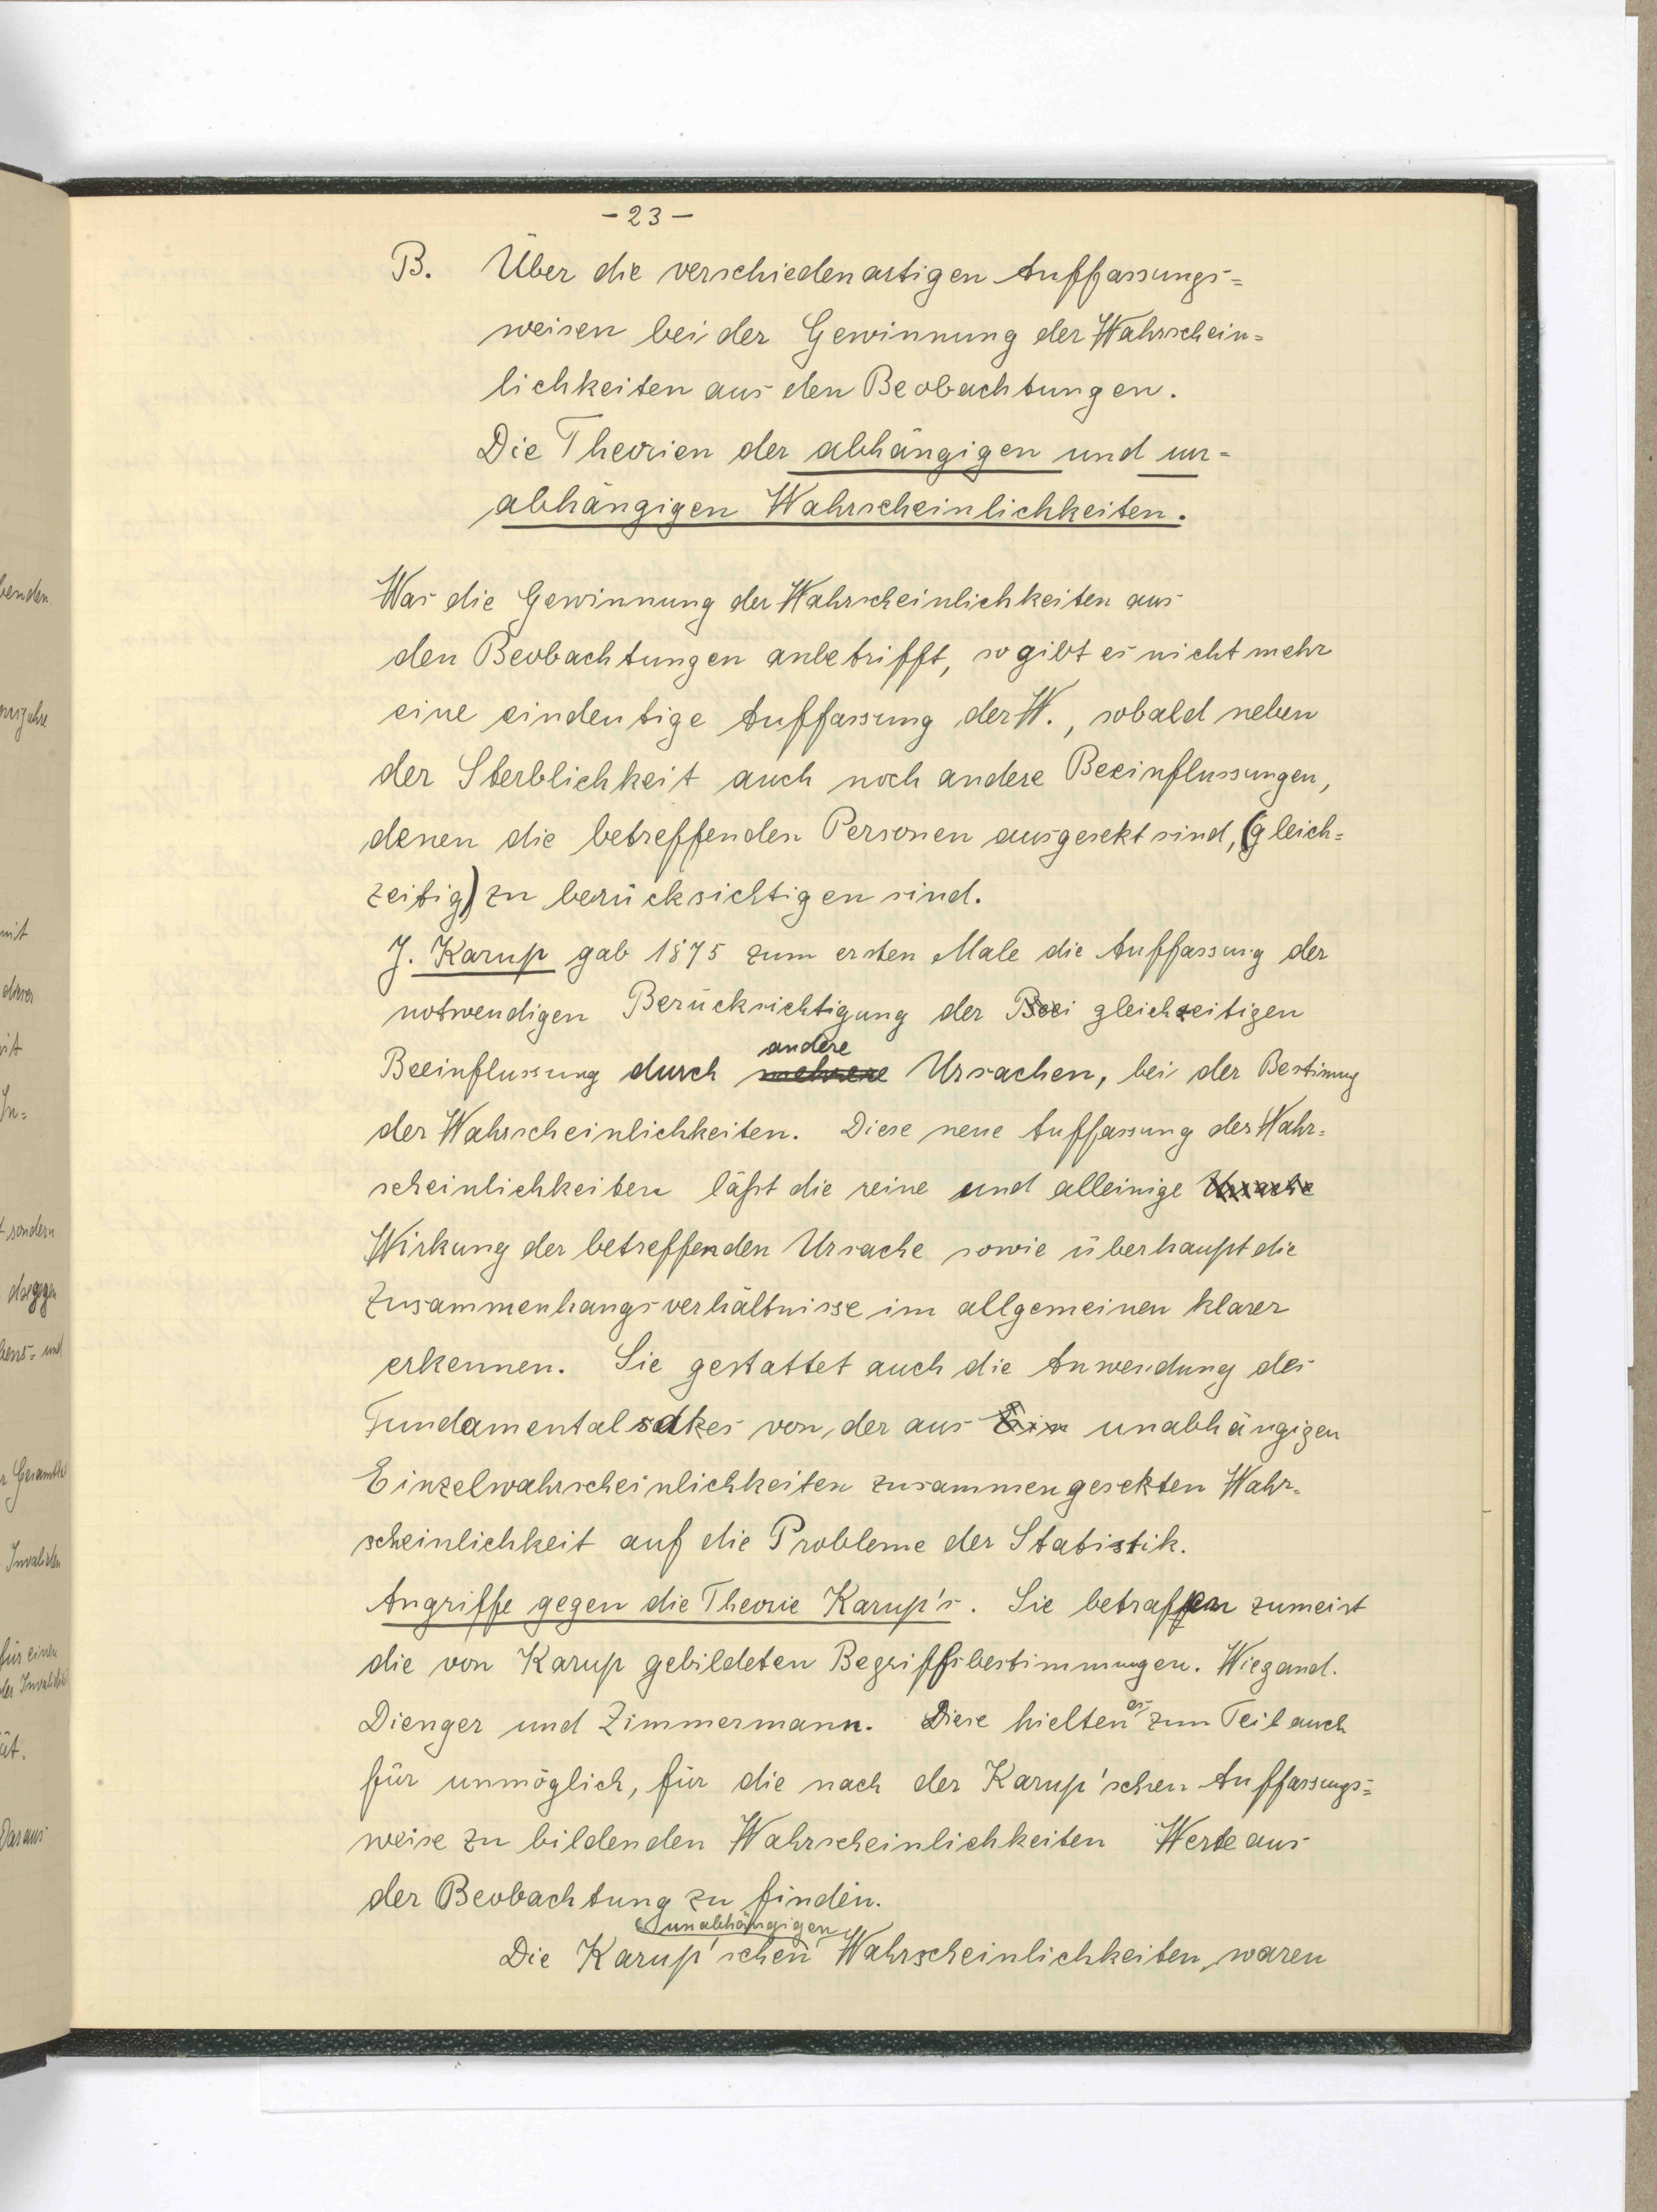 -23-
B. Über die verschiedenartigen Auffassungs=
weisen bei der Gewinnung der Wahrschein=
lichkeiten aus den Beobachtungen.
Die Theorien der abhängigen und un=
abhängigen Wahrscheinlichkeiten.
Was die Gewinnung der Wahrscheinlichkeiten aus
den Beobachtungen anbetrifft, so gibt es nicht mehr
eine eindeutige Auffassung der W., sobald neben
der Sterblichkeit auch noch andere Beeinflussungen,
denen die betreffenden Personen ausgesetzt sind, (gleich=
zeitig) zu berücksichtigen sind.
J. Karup gab 1875 zum ersten Male die Auffassung der
notwendigen Berücksichtigung der gleichzeitigen
andere
Beeinflussung durch mehrere Ursachen, bei der Bestimung
der Wahrscheinlichkeiten. Diese neue Auffassung der Wahr=
scheinlichkeiten läßt die reine und alleinige Ursache
Wirkung der betreffenden Ursache sowie überhaupt die
Zusammenhangsverhältnisse im allgemeinen klarer
erkennen. Sie gestattet auch die Anwendung des
Fundamentalsatzes von der aus Ein unabhängigen
Einzelwahrscheinlichkeiten zusammengesetzten Wahr=
scheinlichkeit auf die Probleme der Statistik.
Angriffe gegen die Theorie Karup's. Sie betraffen zumeist
die von Karup gebildeten Begriffsbestimmungen. Wiegand.
Dienger und Zimmermann. Diese hielten es zum Teil auch
für unmöglich, für die nach der Karup'schen Auffassungs=
weise zu bildenden Wahrscheinlichkeiten Werte aus
der Beobachtung zu finden.
unabhängigen
Die Karup'schen Wahrscheinlichkeiten waren